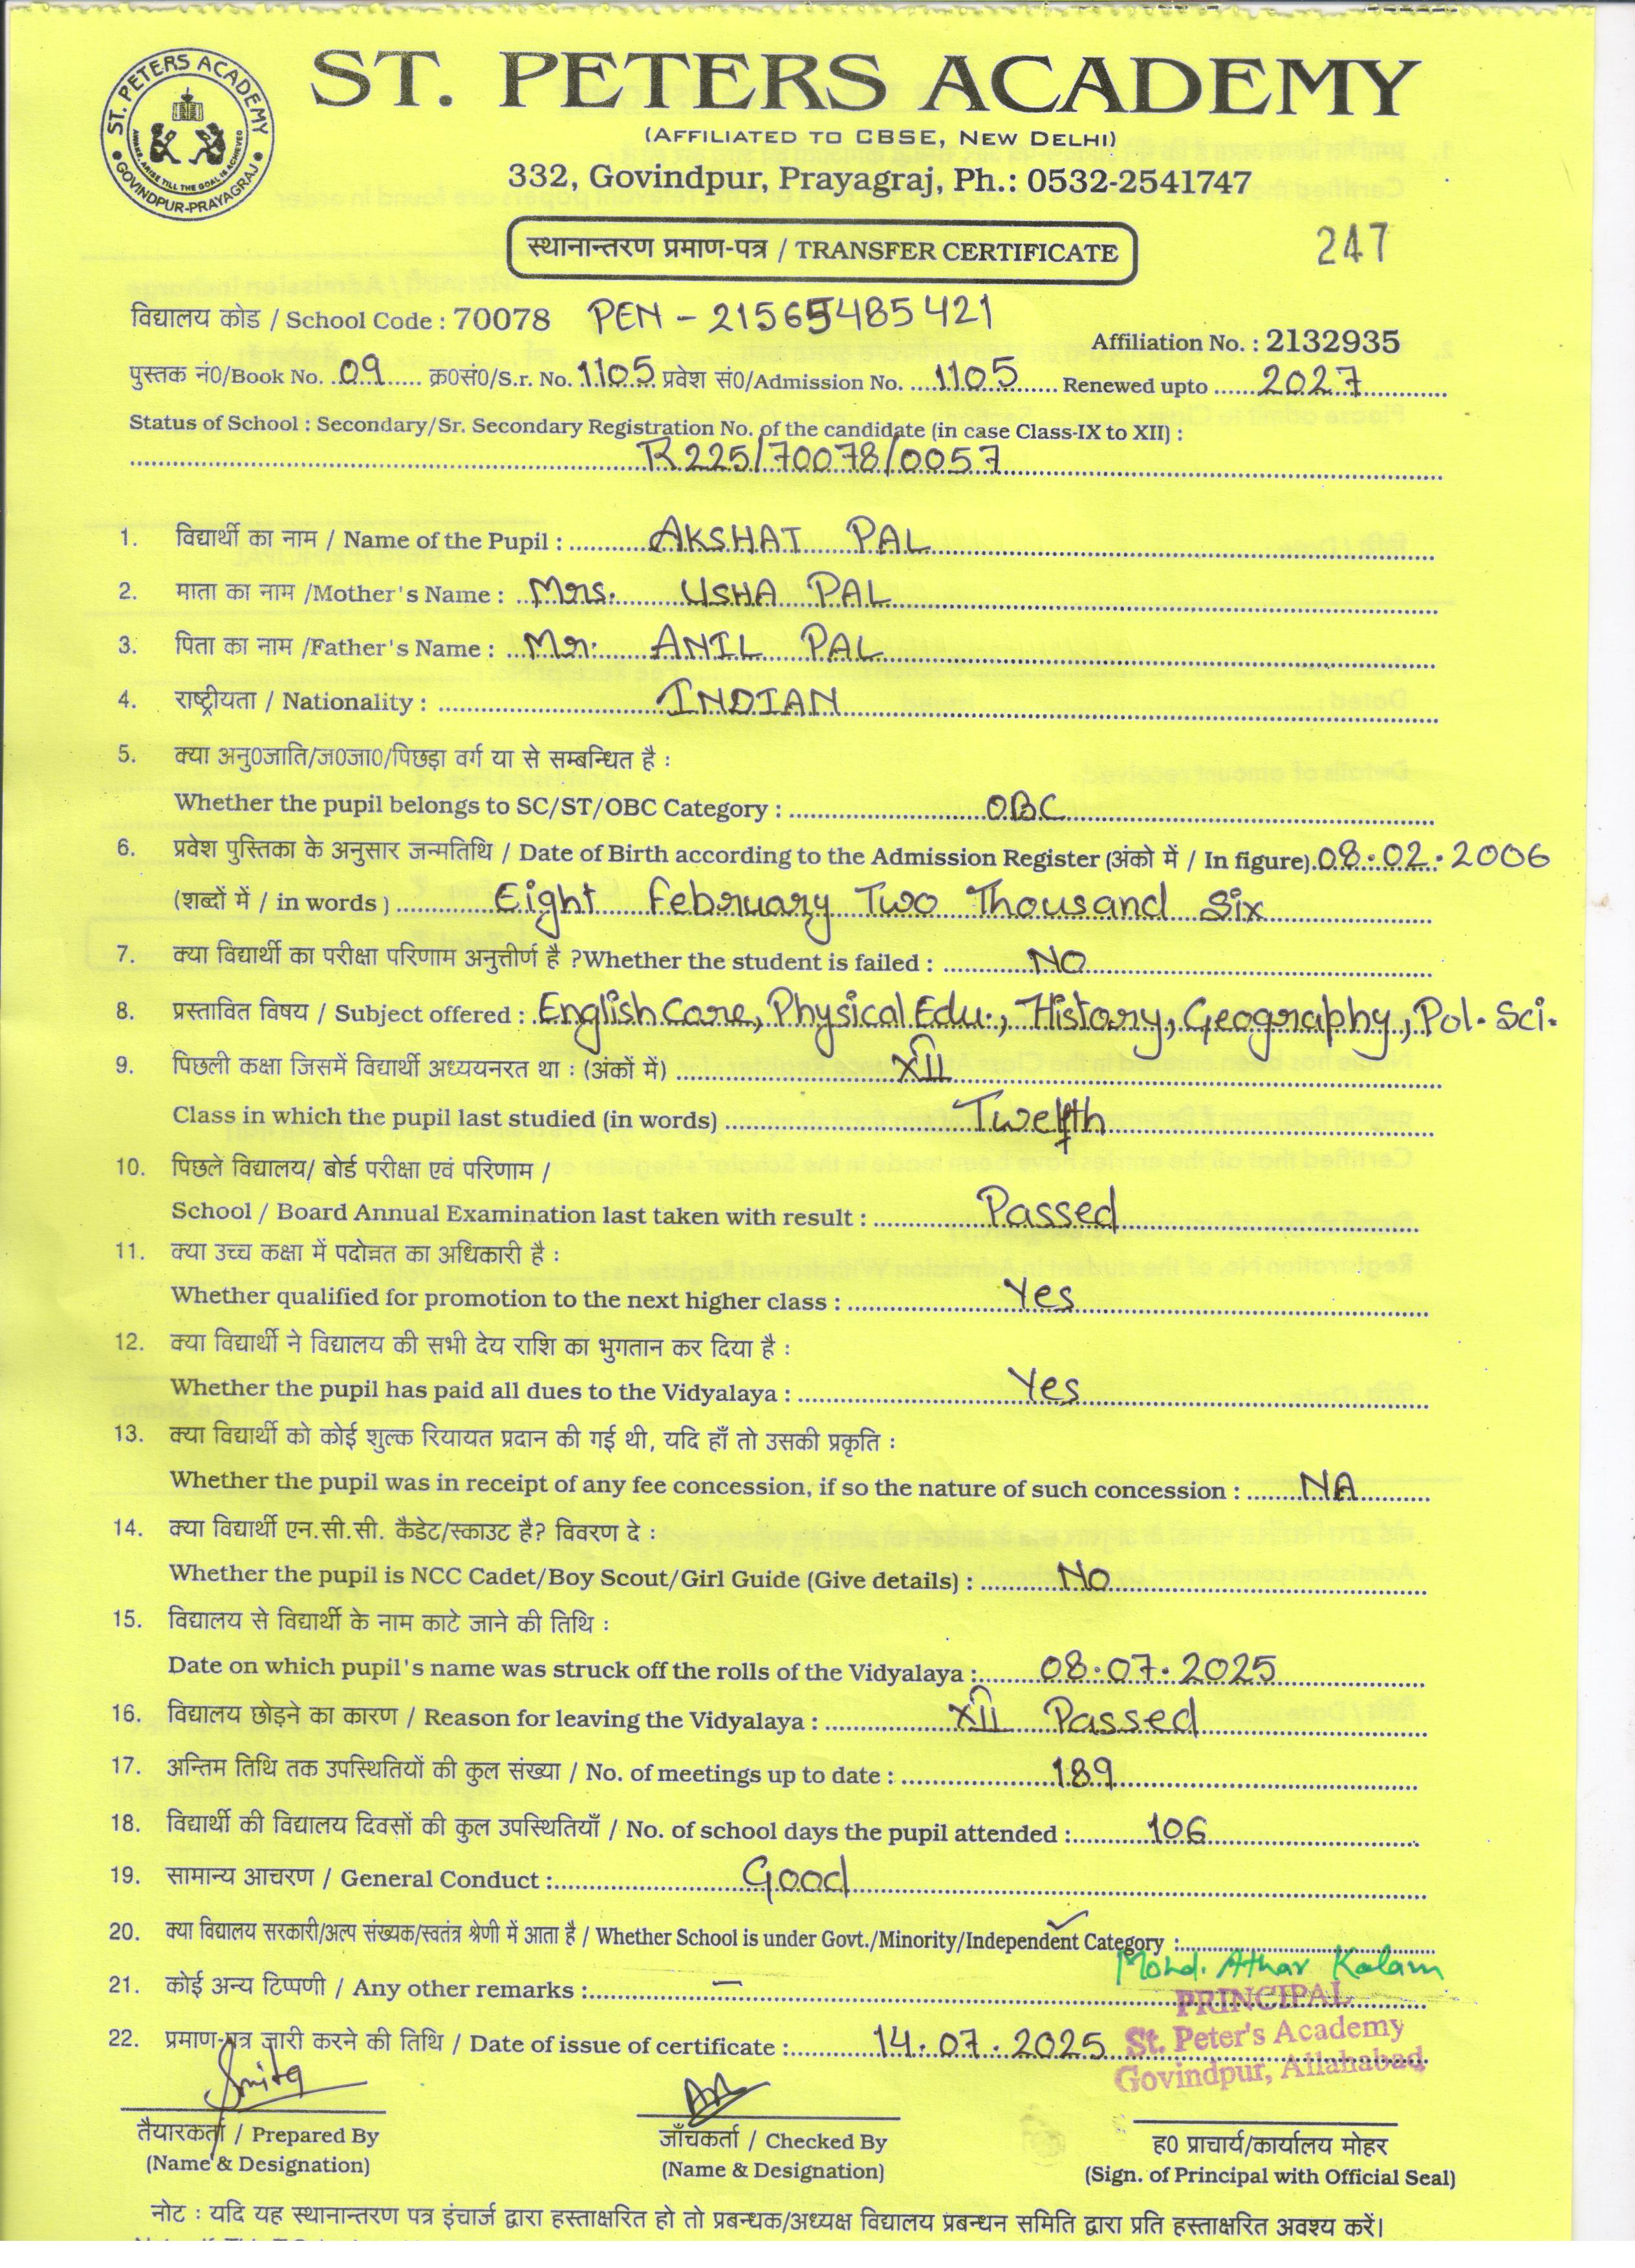 ST. PETERS ACADEMY
ST. PETERS ACADEMY
AWAKE, ARISE TILL THE GOAL IS ACHIEVED
GOVINDPUR-PRAYAGRAJ
(AFFILIATED TO CBSE, NEW DELHI)
332, Govindpur, Prayagraj, Ph.: 0532-2541747
स्थानान्तरण प्रमाण-पत्र / TRANSFER CERTIFICATE
247
विद्यालय कोड / School Code : 70078 PEN - 21565485421
Affiliation No. : 2132935
पुस्तक नं0/Book No. 09 क्र0सं0/S.r. No. 1105 प्रवेश सं0/Admission No. 1105 Renewed upto 2027
Status of School : Secondary/Sr. Secondary Registration No. of the candidate (in case Class-IX to XII) :
R225/70078/0057
1. विद्यार्थी का नाम / Name of the Pupil : AKSHAT PAL
2. माता का नाम /Mother's Name : Mrs. USHA PAL
3. पिता का नाम /Father's Name : Mr. ANIL PAL
4. राष्ट्रीयता / Nationality : INDIAN
5. क्या अनु0जाति/ज0जा0/पिछड़ा वर्ग या से सम्बन्धित है :
Whether the pupil belongs to SC/ST/OBC Category : OBC
6. प्रवेश पुस्तिका के अनुसार जन्मतिथि / Date of Birth according to the Admission Register (अंको में / In figure) 08.02.2006
(शब्दों में / in words ) Eight February Two Thousand Six
7. क्या विद्यार्थी का परीक्षा परिणाम अनुत्तीर्ण है ?Whether the student is failed : NO
8. प्रस्तावित विषय / Subject offered : English Core, Physical Edu., History, Geography, Pol. Sci.
9. पिछली कक्षा जिसमें विद्यार्थी अध्ययनरत था : (अंकों में) XII
Class in which the pupil last studied (in words) Twelfth
10. पिछले विद्यालय/ बोर्ड परीक्षा एवं परिणाम /
School / Board Annual Examination last taken with result : Passed
11. क्या उच्च कक्षा में पदोन्नत का अधिकारी है :
Whether qualified for promotion to the next higher class : Yes
12. क्या विद्यार्थी ने विद्यालय की सभी देय राशि का भुगतान कर दिया है :
Whether the pupil has paid all dues to the Vidyalaya : Yes
13. क्या विद्यार्थी को कोई शुल्क रियायत प्रदान की गई थी, यदि हाँ तो उसकी प्रकृति :
Whether the pupil was in receipt of any fee concession, if so the nature of such concession : NA
14. क्या विद्यार्थी एन.सी.सी. कैडेट/स्काउट है? विवरण दे :
Whether the pupil is NCC Cadet/Boy Scout/Girl Guide (Give details) : NO
15. विद्यालय से विद्यार्थी के नाम काटे जाने की तिथि :
Date on which pupil's name was struck off the rolls of the Vidyalaya : 08.07.2025
16. विद्यालय छोड़ने का कारण / Reason for leaving the Vidyalaya : XII Passed
17. अन्तिम तिथि तक उपस्थितियों की कुल संख्या / No. of meetings up to date : 189
18. विद्यार्थी की विद्यालय दिवसों की कुल उपस्थितियाँ / No. of school days the pupil attended : 106
19. सामान्य आचरण / General Conduct : Good
20. क्या विद्यालय सरकारी/अल्प संख्यक/स्वतंत्र श्रेणी में आता है / Whether School is under Govt./Minority/Independent Category :
Mohd. Athar Kalam
21. कोई अन्य टिप्पणी / Any other remarks : —
PRINCIPAL
St. Peter's Academy
Govindpur, Allahabad
22. प्रमाण-पत्र जारी करने की तिथि / Date of issue of certificate : 14.07.2025
Smita
तैयारकर्ता / Prepared By
(Name & Designation)
जाँचकर्ता / Checked By
(Name & Designation)
ह0 प्राचार्य/कार्यालय मोहर
(Sign. of Principal with Official Seal)
नोट : यदि यह स्थानान्तरण पत्र इंचार्ज द्वारा हस्ताक्षरित हो तो प्रबन्धक/अध्यक्ष विद्यालय प्रबन्धन समिति द्वारा प्रति हस्ताक्षरित अवश्य करें।